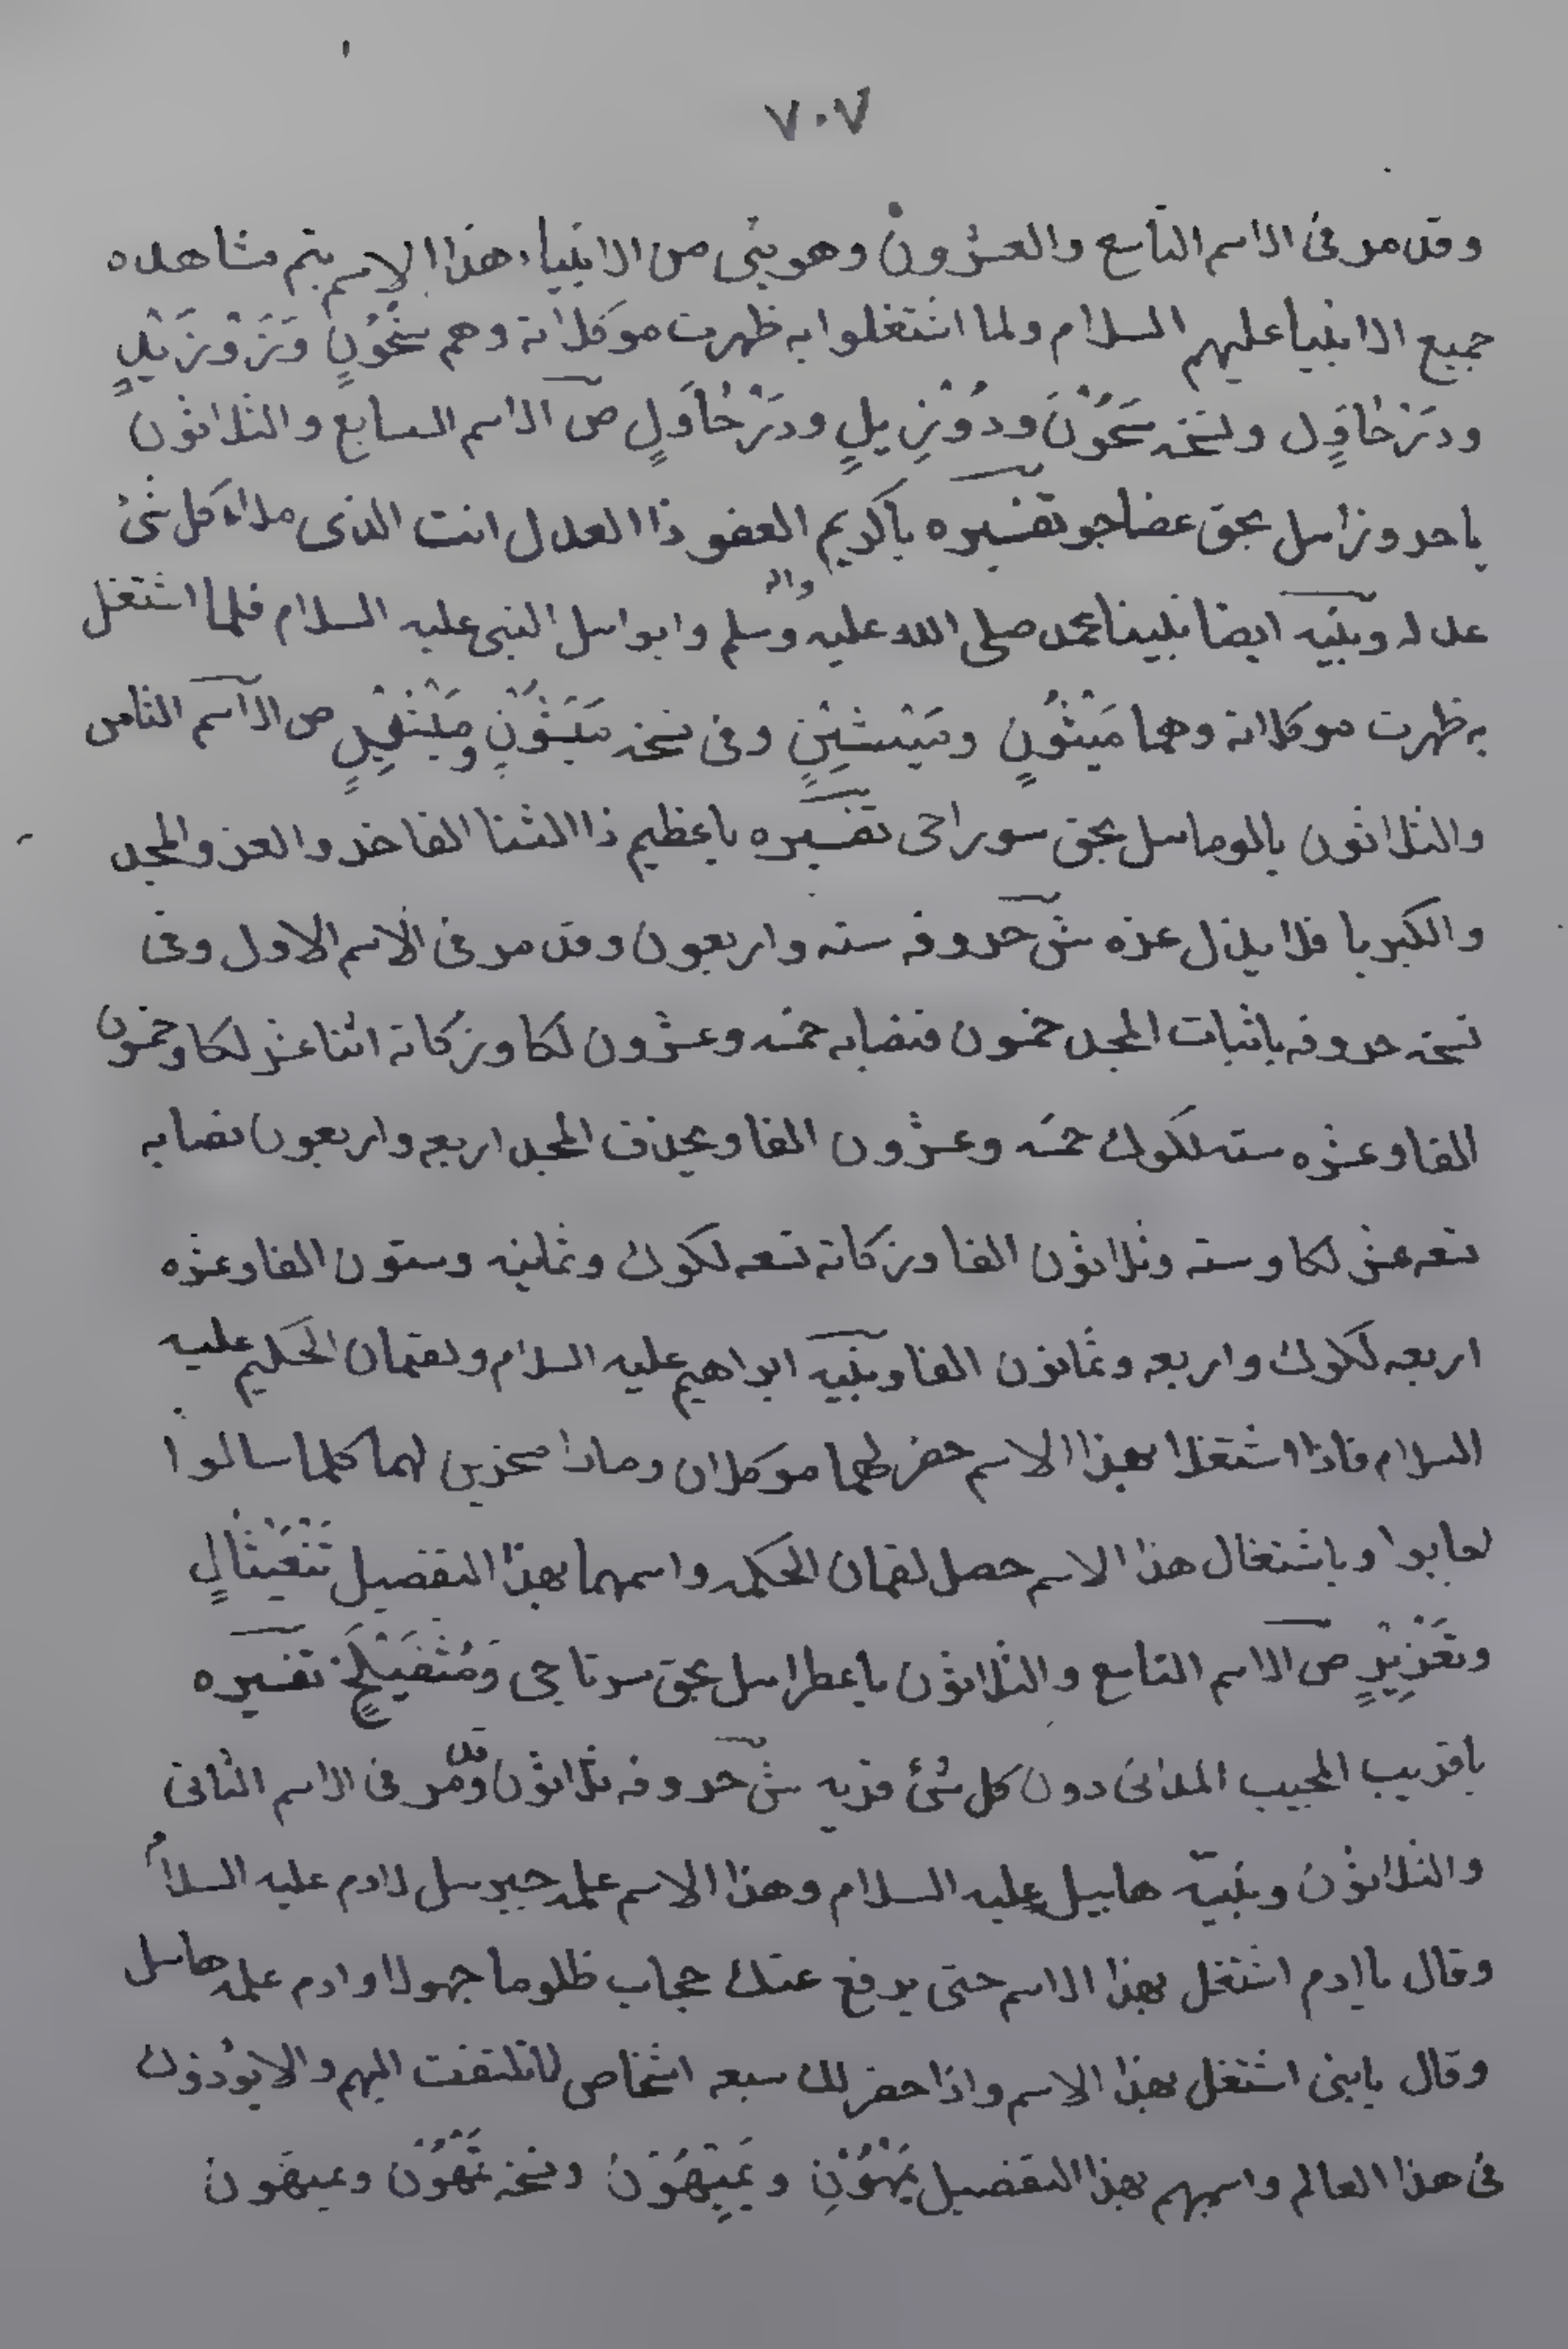 ٧٠٧
وقد مر فى الاسم التاسع والعشرون وهو بنبى من الانبياء هذا الاسم يتم مشاهده
جميع الانبيا عليهم السلام ولما اشتغلوا به ظهرت موكلاته وهم
ودَرْحَاوَلٍ ص الاسم السابع والثلاثون
بحق تفسيره ياكريم العفو ذا العدل انت الذى ملاء كل شئ
عدله وبنيه ايضا نبينا محمد صلى الله عليه واله وسلم النبى عليه السلام فلما اشتغل
به ظهرت موكلاته وهما مَيْثُونٍ وفى نسخه ص الاسم الثامن
والثلاثون بحق تفسيره ياعظيم ذا الثنا الفاخر والعز والمجد
والكبريا فلا يذل عزه ش حروفه سته واربعون وقد مر فى الاسم الاول وفى
نسخه حروفه باثبات المجد خمسون فنصابه خمسه وعشرون لكا وزكاته اثنا عشر لكا وخمسون
الفا وعشره سته لكوك خمسه وعشرون الفا وبحذف المجد اربعه واربعون نصابه
تسعه عشر لكا وسته وثلاثون الفا وزكاته تسعه لكوك وثمانيه وستون الفا وعشره
اربعه لكوك واربعه وثمانون الفا وبنيه ابراهيم عليه السلام ولقمان الحكيم عليه
السلام فاذا اشتغلا بهذا الاسم حضر لهما موكلان وماذا مسخرين لهما كلما سالوا
لجابوا وباشتغال هذا الاسم حصل لقمان الحكمه واسمهما بهذا التفصيل
ص الاسم التاسع والثلاثون بحق تفسيره
ياقريب المجيب المدانى دون كل شئ قربه ش حروفه ثلاثون وقد مر فى الاسم الثانى
والثلاثون وبنيه هابيل عليه السلام وهذا الاسم علمه جبرسل لادم عليه السلام
وقال ياادم اشتغل بهذا الاسم حتى يرفع عنك حجاب ظلوما جهولا وادم علمه هاسل
وقال يابنى اشتغل بهذا الاسم واذا حضر لك سبعه اشخاص لاتلتفت اليهم والا يوذون
فى هذا العالم واسمهم بهذا التفصيل ونسخه